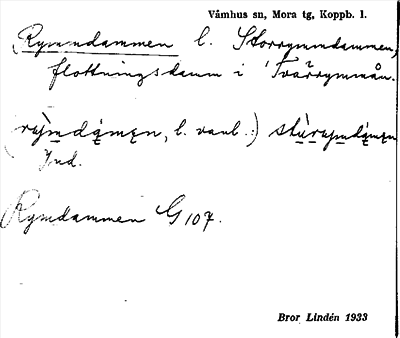 Våmhus sn, Mora tg, Koppb. l.
Rymmdammen l. Storrymmdammen,
flottningsdamm i Tvärrymmån.
l. vanl.:)
Ind.
Rymdammen G 107.
Bror Lindén 1933